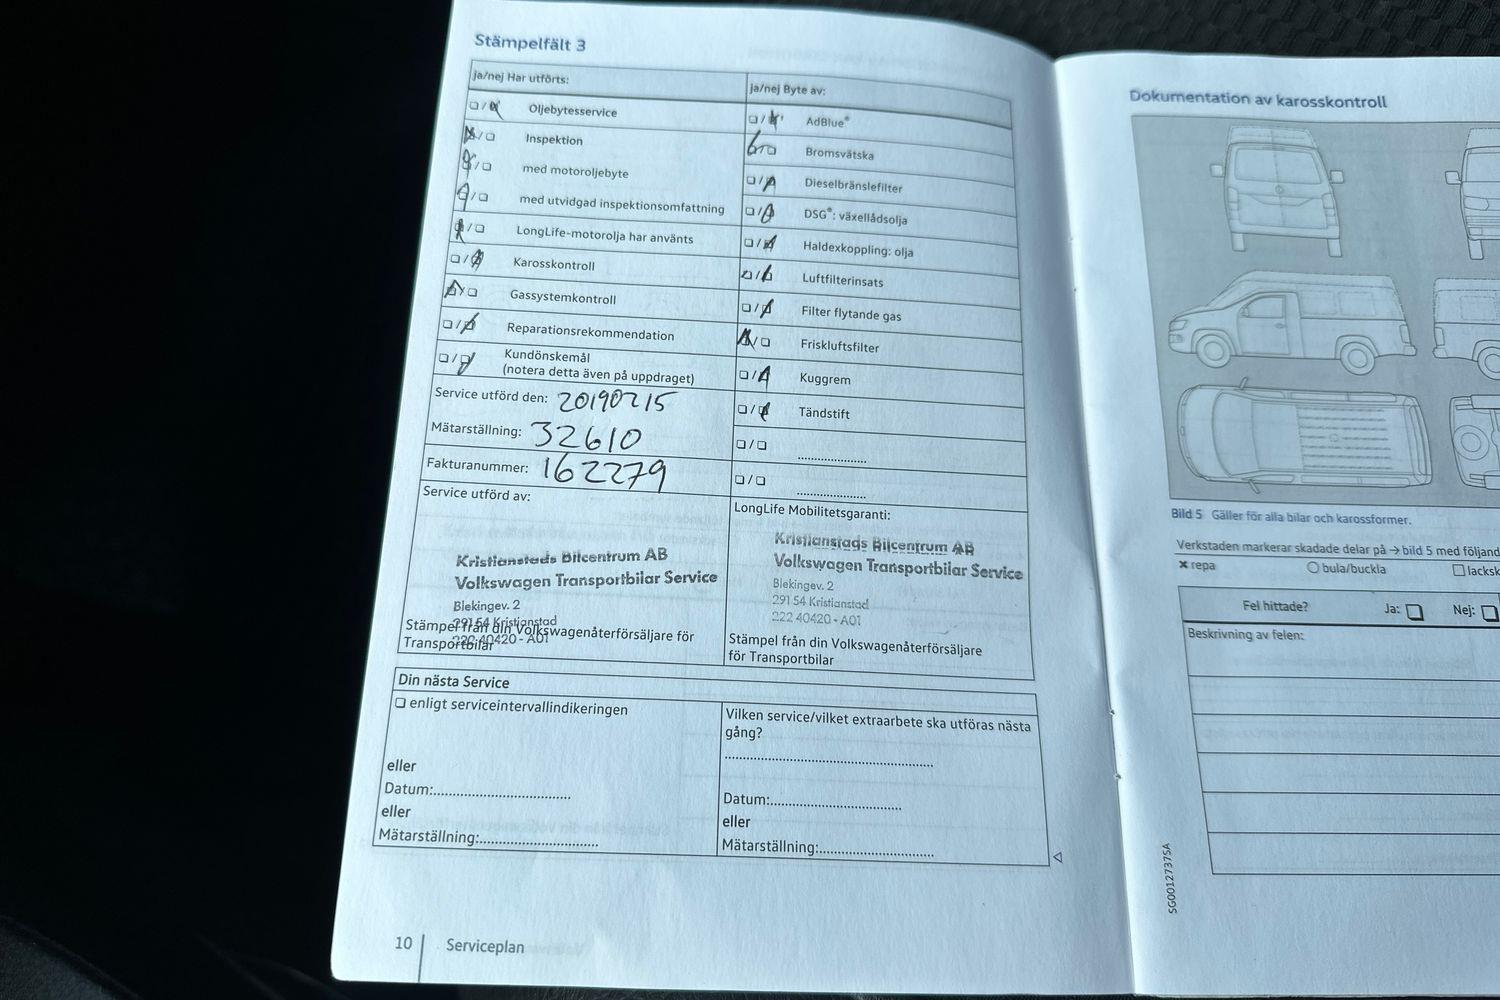 Stämpelfält 3
ja/nej Har utförts:
Oljebytesservice
Inspektion
med motoroljebyte
med utvidgad inspektionsomfattning
LongLife-motorolja har använts
Karosskontroll
Gassystemkontroll
Reparationsrekommendation
Kundönskemål
(notera detta även på uppdraget)
Service utförd den: 20190215
Mätarställning: 32610
Fakturanummer: 162279
Service utförd av:
Kristianstads Bilcentrum AB
Volkswagen Transportbilar Service
Blekingev. 2
291 54 Kristianstad
222 40420 - A01
Stämpel från din Volkswagenåterförsäljare för
Transportbilar
ja/nej Byte av:
AdBlue®
Bromsvätska
Dieselbränslefilter
DSG®: växellådsolja
Haldexkoppling: olja
Luftfilterinsats
Filter flytande gas
Friskluftsfilter
Kuggrem
Tändstift
LongLife Mobilitetsgaranti:
Kristianstads Bilcentrum AB
Volkswagen Transportbilar Service
Blekingev. 2
291 54 Kristianstad
222 40420 - A01
Stämpel från din Volkswagenåterförsäljare
för Transportbilar
Din nästa Service
enligt serviceintervallindikeringen
eller
Datum:
eller
Mätarställning:
Vilken service/vilket extraarbete ska utföras nästa
gång?
Datum:
eller
Mätarställning:
10 Serviceplan
Dokumentation av karosskontroll
Bild 5 Gäller för alla bilar och karossformer.
Verkstaden markerar skadade delar på → bild 5 med följand
repa bula/buckla lacksk
Fel hittade? Ja: Nej:
Beskrivning av felen:
SG0012737SA